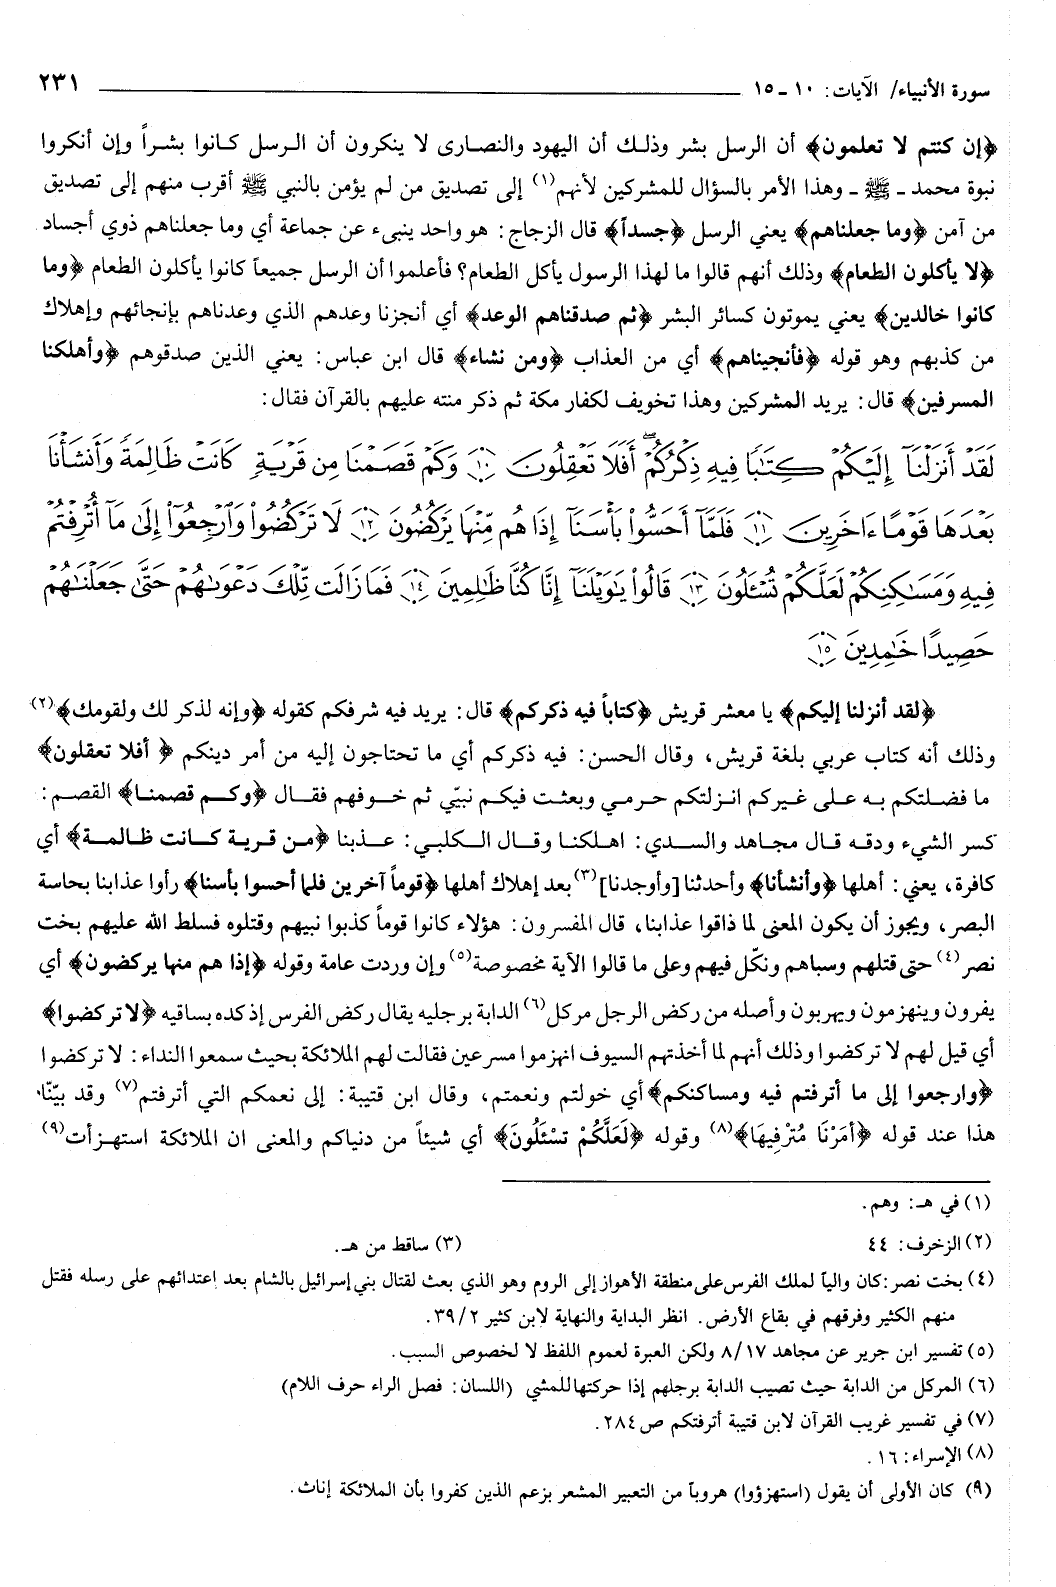 سورة الأنبياء/ الآيات: ١٠ ـ ١٥ ٢٣١
﴿إن كنتم لا تعلمون﴾ أن الرسل بشر وذلك أن اليهود والنصارى لا ينكرون أن الرسل كانوا بشراً وإن أنكروا
نبوة محمد ـ ﷺ ـ وهذا الأمر بالسؤال للمشركين لأنهم(١) إلى تصديق من لم يؤمن بالنبي ﷺ أقرب منهم إلى تصديق
من آمن ﴿وما جعلناهم﴾ يعني الرسل ﴿جسداً﴾ قال الزجاج: هو واحد ينبىء عن جماعة أي وما جعلناهم ذوي أجساد
﴿لا يأكلون الطعام﴾ وذلك أنهم قالوا ما لهذا الرسول يأكل الطعام؟ فأعلموا أن الرسل جميعاً كانوا يأكلون الطعام ﴿وما
كانوا خالدين﴾ يعني يموتون كسائر البشر ﴿ثم صدقناهم الوعد﴾ أي أنجزنا وعدهم الذي وعدناهم بإنجائهم وإهلاك
من كذبهم وهو قوله ﴿فأنجيناهم﴾ أي من العذاب ﴿ومن نشاء﴾ قال ابن عباس: يعني الذين صدقوهم ﴿وأهلكنا
المسرفين﴾ قال: يريد المشركين وهذا تخويف لكفار مكة ثم ذكر منته عليهم بالقرآن فقال:
لَقَدْ أَنزَلْنَآ إِلَيْكُمْ كِتَٰبًا فِيهِ ذِكْرُكُمْ ۖ أَفَلَا تَعْقِلُونَ ﴿١٠﴾ وَكَمْ قَصَمْنَا مِن قَرْيَةٍ كَانَتْ ظَالِمَةً وَأَنشَأْنَا
بَعْدَهَا قَوْمًا ءَاخَرِينَ ﴿١١﴾ فَلَمَّآ أَحَسُّوا۟ بَأْسَنَآ إِذَا هُم مِّنْهَا يَرْكُضُونَ ﴿١٢﴾ لَا تَرْكُضُوا۟ وَٱرْجِعُوٓا۟ إِلَىٰ مَآ أُتْرِفْتُمْ
فِيهِ وَمَسَٰكِنِكُمْ لَعَلَّكُمْ تُسْـَٔلُونَ ﴿١٣﴾ قَالُوا۟ يَٰوَيْلَنَآ إِنَّا كُنَّا ظَٰلِمِينَ ﴿١٤﴾ فَمَا زَالَت تِّلْكَ دَعْوَىٰهُمْ حَتَّىٰ جَعَلْنَٰهُمْ
حَصِيدًا خَٰمِدِينَ ﴿١٥﴾
﴿لقد أنزلنا إليكم﴾ يا معشر قريش ﴿كتاباً فيه ذكركم﴾ قال: يريد فيه شرفكم كقوله ﴿وإنه لذكر لك ولقومك﴾(٢)
وذلك أنه كتاب عربي بلغة قريش، وقال الحسن: فيه ذكركم أي ما تحتاجون إليه من أمر دينكم ﴿أفلا تعقلون﴾
ما فضلتكم به على غيركم انزلتكم حرمي وبعثت فيكم نبيّي ثم خوفهم فقال ﴿وكم قصمنا﴾ القصم:
كسر الشيء ودقه قال مجاهد والسدي: اهلكنا وقال الكلبي: عذبنا ﴿من قرية كانت ظالمة﴾ أي
كافرة، يعني: أهلها ﴿وأنشأنا﴾ وأحدثنا [وأوجدنا](٣) بعد إهلاك أهلها ﴿قوماً آخرين فلما أحسوا بأسنا﴾ رأوا عذابنا بحاسة
البصر، ويجوز أن يكون المعنى لما ذاقوا عذابنا، قال المفسرون: هؤلاء كانوا قوماً كذبوا نبيهم وقتلوه فسلط الله عليهم بخت
نصر(٤) حتى قتلهم وسباهم ونكّل فيهم وعلى ما قالوا الآية مخصوصة(٥) وإن وردت عامة وقوله ﴿إذا هم منها يركضون﴾ أي
يفرون وينهزمون ويهربون وأصله من ركض الرجل مركل(٦) الدابة برجليه يقال ركض الفرس إذ كده بساقيه ﴿لا تركضوا﴾
أي قيل لهم لا تركضوا وذلك أنهم لما أخذتهم السيوف انهزموا مسرعين فقالت لهم الملائكة بحيث سمعوا النداء: لا تركضوا
﴿وارجعوا إلى ما أترفتم فيه ومساكنكم﴾ أي خولتم ونعمتم، وقال ابن قتيبة: إلى نعمكم التي أترفتم(٧) وقد بيّنّا
هذا عند قوله ﴿أَمَرْنَا مُتْرَفِيهَا﴾(٨) وقوله ﴿لَعَلَّكُمْ تسْئَلُونَ﴾ أي شيئاً من دنياكم والمعنى ان الملائكة استهزأت(٩)
(١) في هـ: وهم.
(٢) الزخرف: ٤٤ (٣) ساقط من هـ.
(٤) بخت نصر: كان والياً لملك الفرس على منطقة الأهواز إلى الروم وهو الذي بعث لقتال بني إسرائيل بالشام بعد إعتدائهم على رسله فقتل
منهم الكثير وفرقهم في بقاع الأرض. انظر البداية والنهاية لابن كثير ٣٩/٢.
(٥) تفسير ابن جرير عن مجاهد ٨/١٧ ولكن العبرة لعموم اللفظ لا لخصوص السبب.
(٦) المركل من الدابة حيث تصيب الدابة برجلهم إذا حركتها للمشي (اللسان: فصل الراء حرف اللام)
(٧) في تفسير غريب القرآن لابن قتيبة أترفتكم ص ٢٨٤.
(٨) الإسراء: ١٦.
(٩) كان الأولى أن يقول (استهزؤوا) هروباً من التعبير المشعر بزعم الذين كفروا بأن الملائكة إناث.